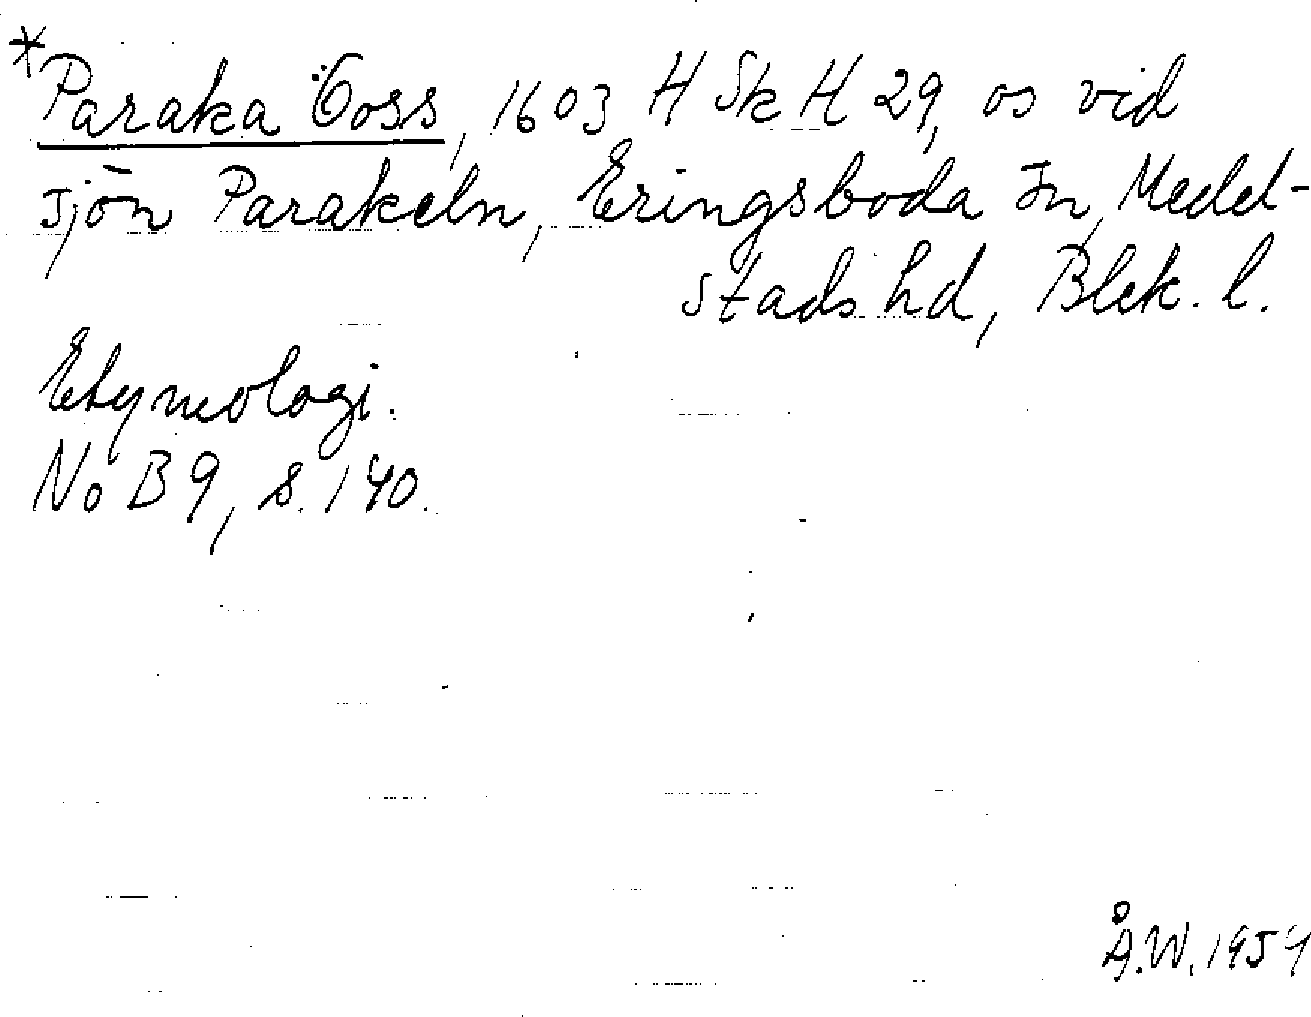 *Paraka Öoss, 1603 H Sk H 29, os vid
sjön Parakeln, Eringsboda sn, Medel-
stads hd, Blek. l.
Etymologi.
NoB 9, s. 140.
Å.W. 1954